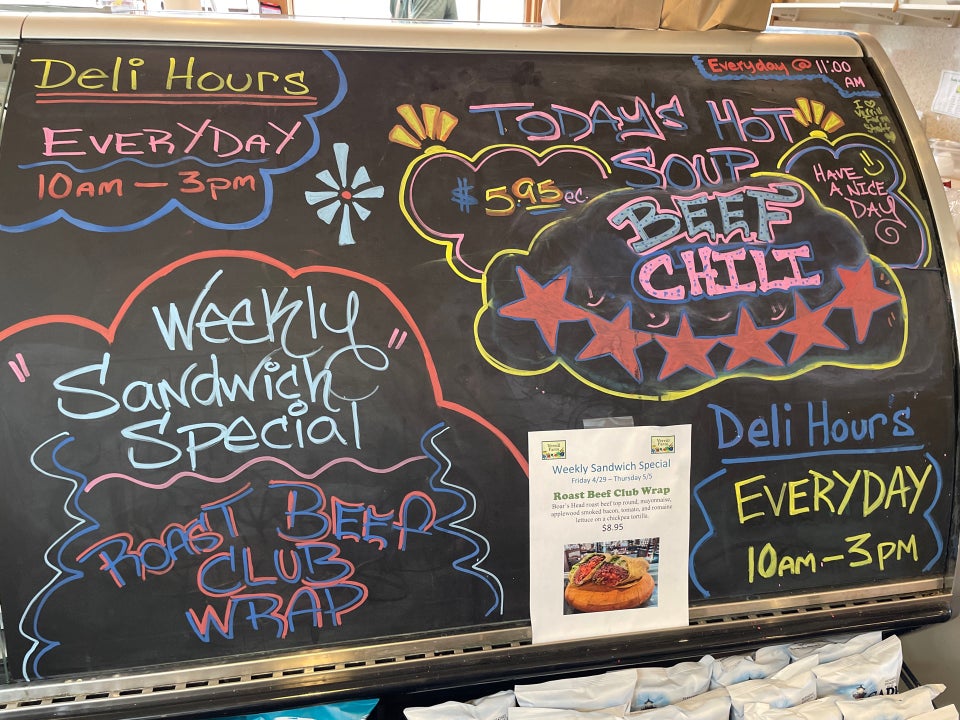 Deli Hours
EVERYDAY
10AM — 3PM
Weekly
Sandwich
Special
ROAST BEEF
CLUB
WRAP
Everyday @ 11:00
AM
TODAY'S HOT
SOUP
$5.95 ec.
BEEF
CHILI
HAVE
A NICE
DAY
Verrill
Farm
Verrill
Farm
Weekly Sandwich Special
Friday 4/29 – Thursday 5/5
Roast Beef Club Wrap
Boar's Head roast beef top round, mayonnaise,
applewood smoked bacon, tomato, and romaine
lettuce on a chickpea tortilla.
$8.95
Deli Hours
EVERYDAY
10AM — 3PM